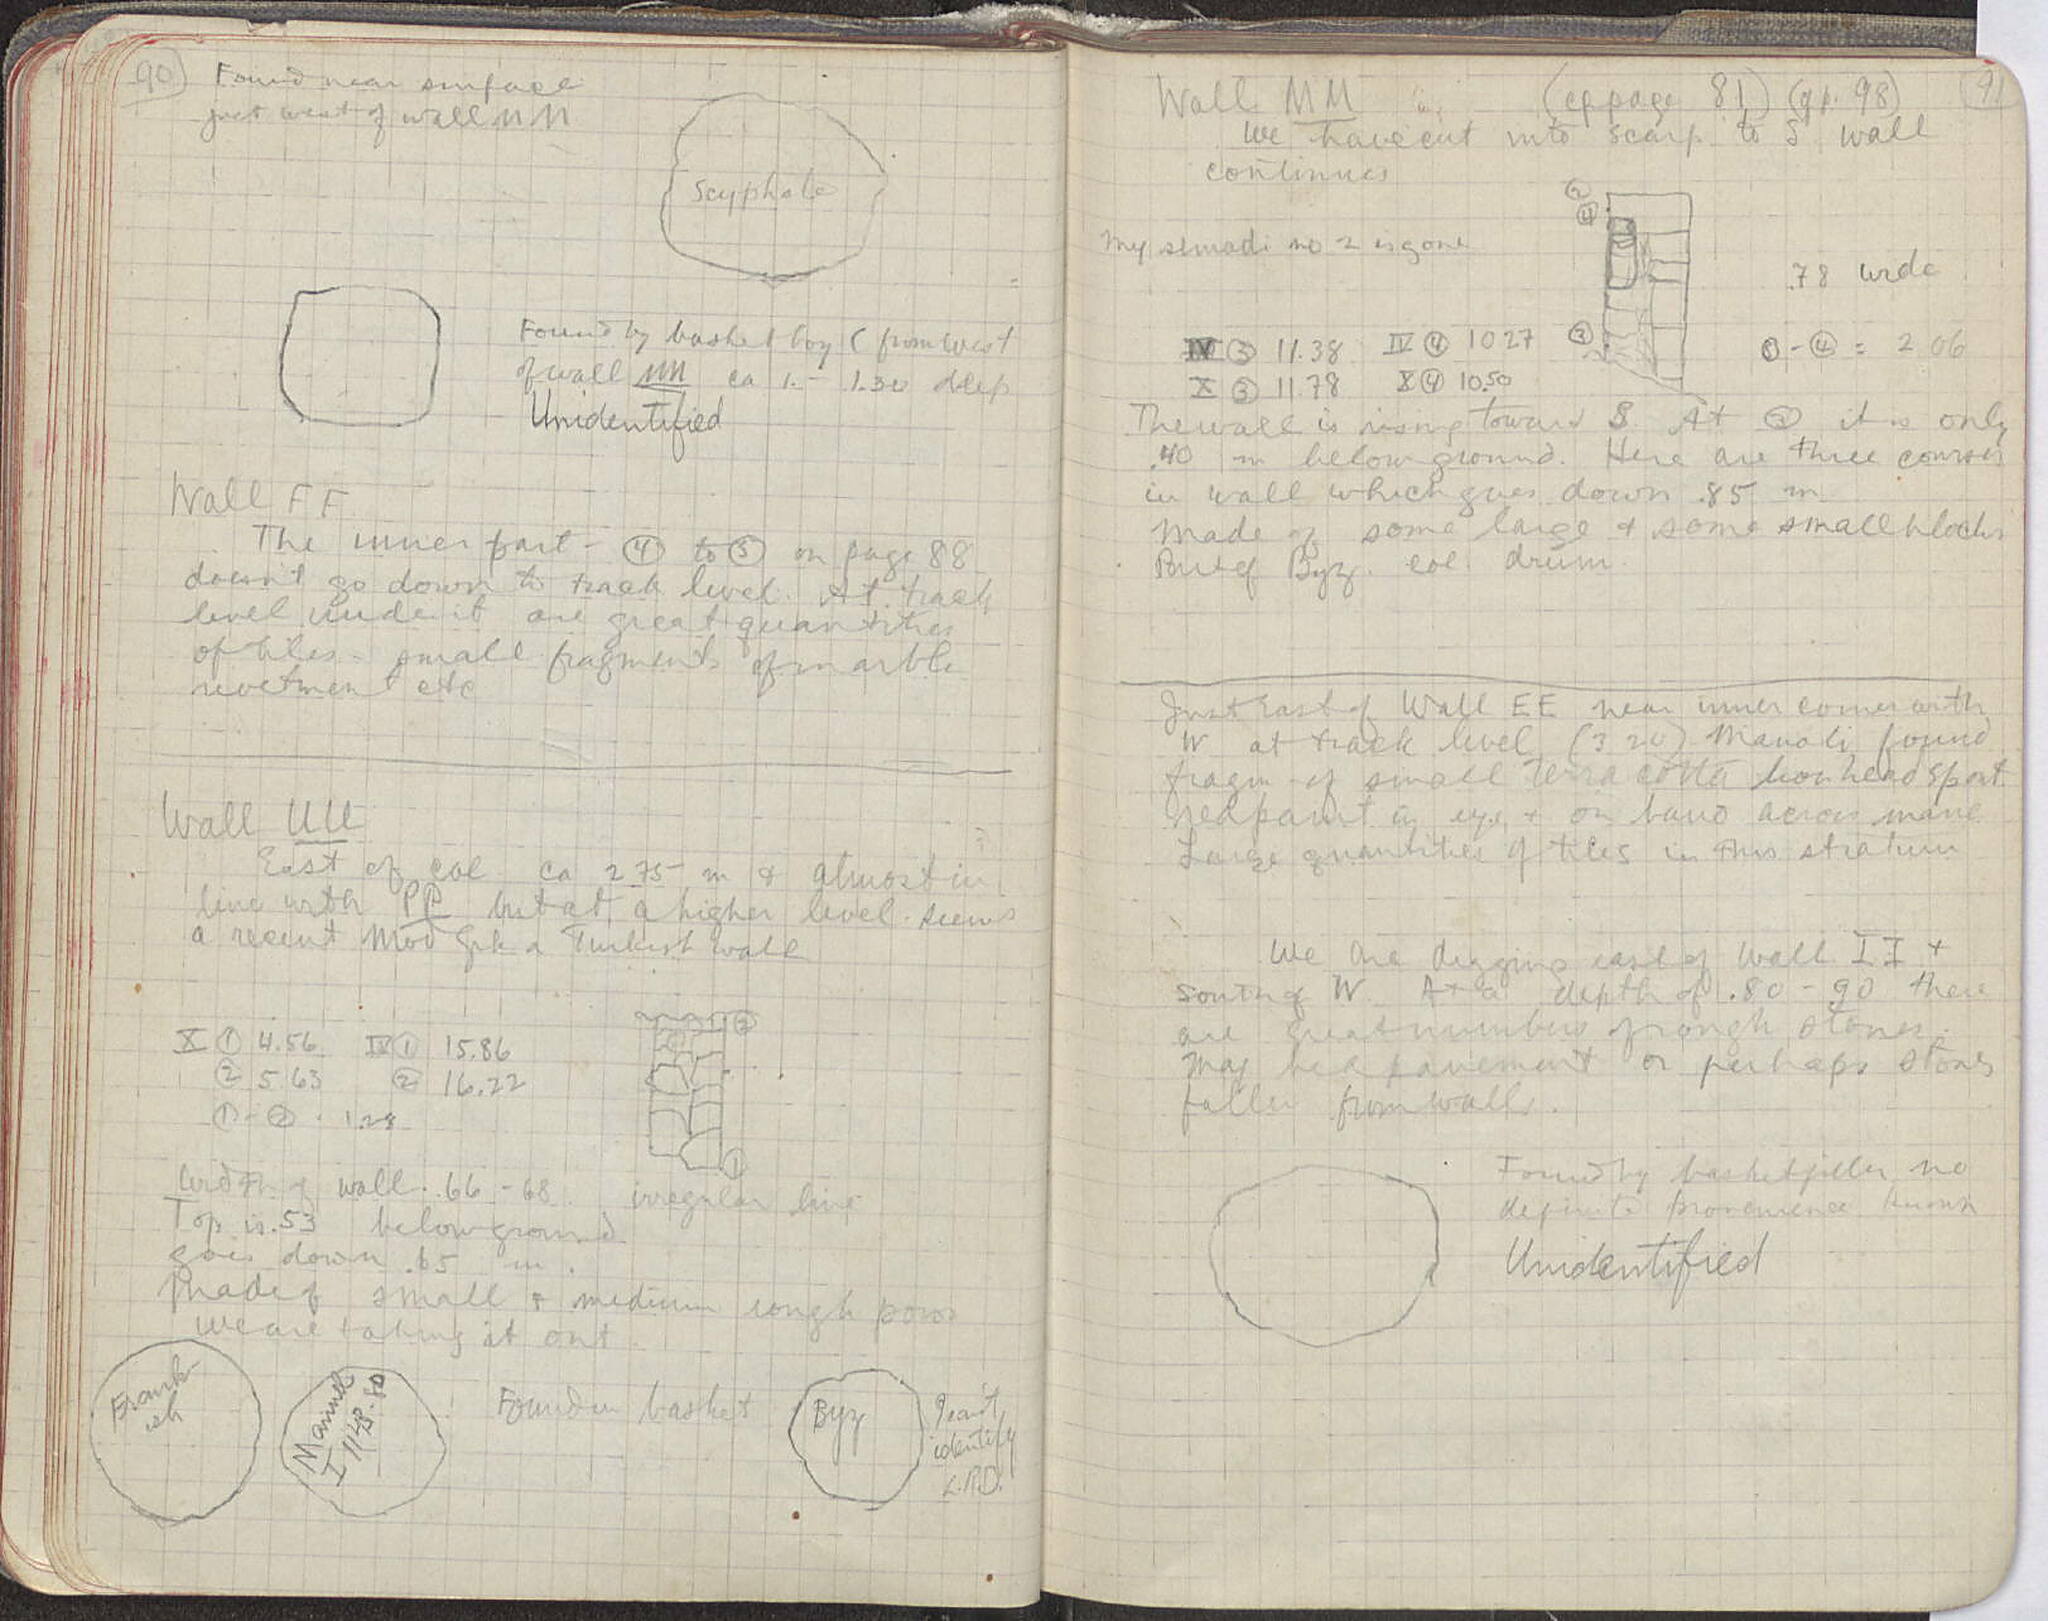 90
Found near surface
just west of wall MM
Scyphate
Found by basket boy (from west
of wall MM ca 1.- 1.30 deep
Unidentified
Wall FF
The inner part - ④ to ⑤ on page 88
doesn't go down to track level. At track
level under it are great quantities
of tiles - small fragments of marble
revetment etc
Wall UU
East of col ca 2.75 m & almost in
line with PP but at a higher level. seems
a recent Mod Grk or Turkish wall
X ① 4.56 IV ① 15.86
② 5.63 ② 16.22
②
①-② . 1.28
①
Width of wall .66 - 68 irregular line
Top is .53 below ground
goes down .65 m.
Made of small & medium rough poros
We are taking it out
Frank-
ish
Manuel
I 1143-80
Found in basket
Byz
I can't
identify
91
Wall MM (cf page 81) (cf p. 98)
We have cut into scarp to S wall
continues
②
④
My simadi no 2 is gone
.78 wide
IV ③ 11.38 IV ④ 10 27 ③ ③-④ = 2 06
X ③ 11.78 X ④ 10.50
The wall is rising toward S. At ③ it is only
.40 m below ground. Here are three courses
in wall which goes down .85 m
Made of some large & some small blocks
Part of Byz. col. drum.
Just East of Wall EE near inner corner with
W at track level (3 20) Manoli found
fragm of small terra cotta lion head spout
red paint in eye & on band across mane
Large quantities of tiles in this stratum
We are digging east of Wall II +
South of W At a depth of .80 - 90 there
are great numbers of rough stones.
May be a pavement or perhaps stones
fallen from walls.
Found by basket filler no
definite provenience known
Unidentified